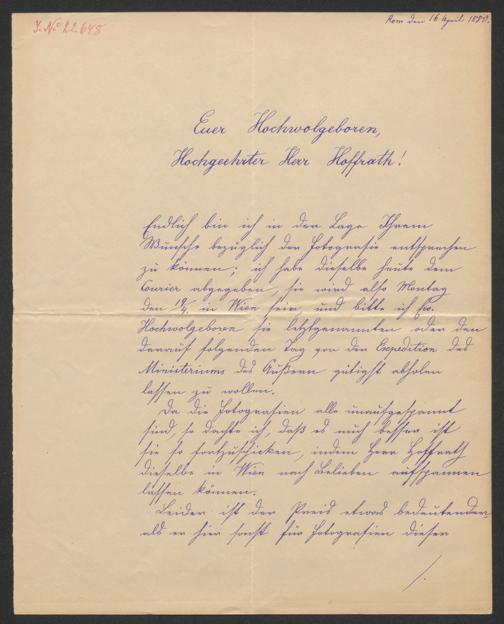 J. No 22.648
Rom den 16 April 1889.
Euer Hochwolgeboren,
Hochgeehrter Herr Hoffrath!
Endlich bin ich in der Lage Ihrem
Wunsche bezüglich der Fotografie entsprechen
zu können; ich habe dieselbe heute dem
Courier abgegeben, sie wird also Montag
den in Wien sein, und bitte ich Eu.
Hochwolgeboren sie letztgenannten oder den
darauf folgenden Tag von der Expedition des
Ministeriums des Äußern gütigst abholen
lassen zu wollen.
Da die Fotografien alle unaufgespannt
sind, so dachte ich, daß es auch besser ist
sie so fortzuschicken, indem Herr Hoffrath
dieselbe in Wien nach Belieben aufspannen
lassen können.
Leider ist der Preis etwas bedeutender
als er hier sonst für Fotografien dieser